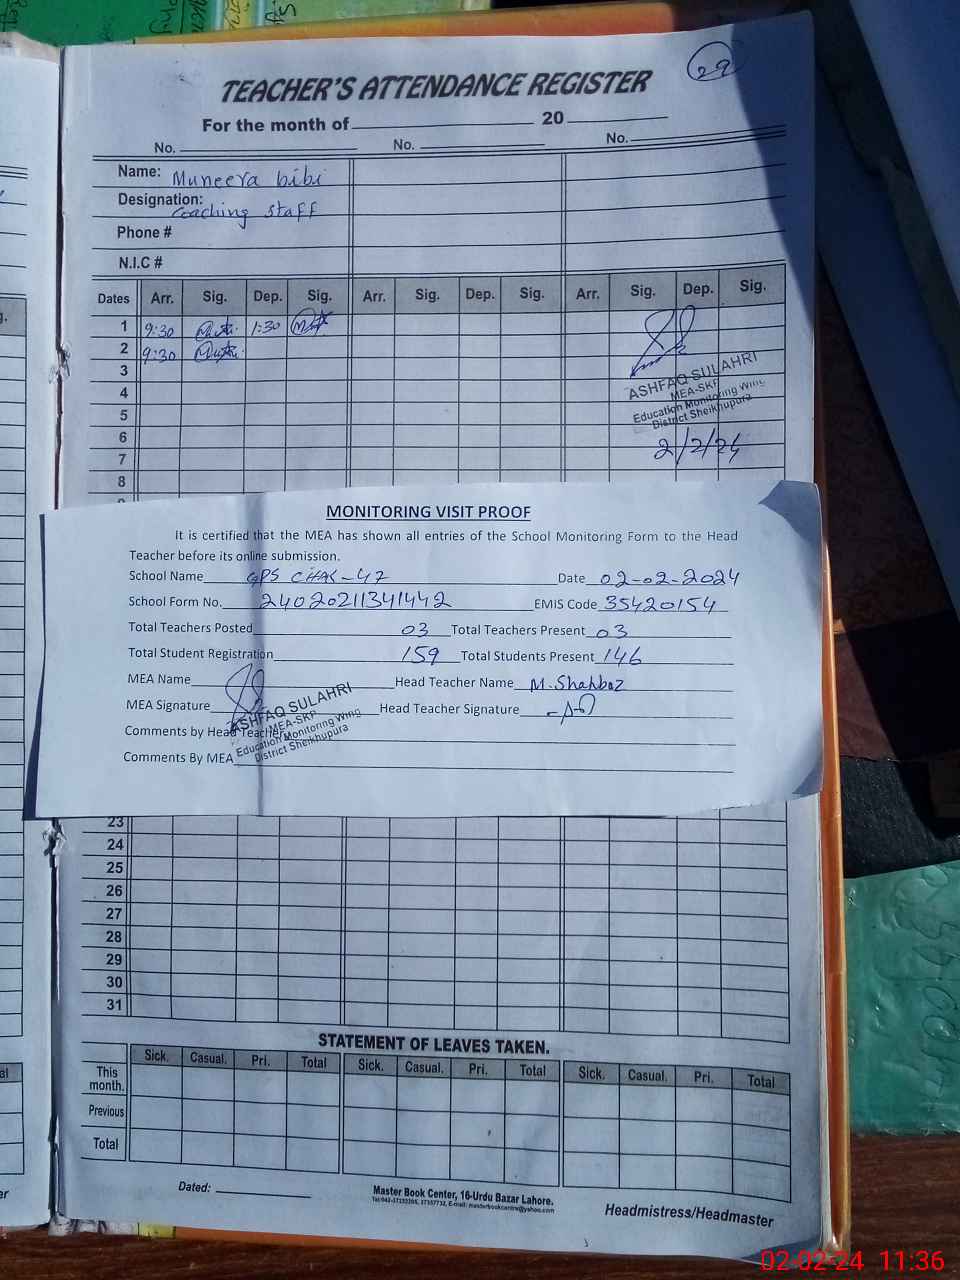 29
TEACHER'S ATTENDANCE REGISTER
For the month of 20
No. No. No.
Name: Muneera bibi
Designation: Coaching staff
Phone #
N.I.C #
Dates Arr. Sig. Dep. Sig. Arr. Sig. Dep. Sig. Arr. Sig. Dep. Sig.
1 9:30 1:30
2 9:30
3
4
5
6
7
8
ASHFAQ SULAHRI
MEA-SKP
Education Monitoring Wing
District Sheikhupura
2/2/24
MONITORING VISIT PROOF
It is certified that the MEA has shown all entries of the School Monitoring Form to the Head
Teacher before its online submission.
School Name GPS CHAK-47 Date 02-02-2024
School Form No. 24020211341442 EMIS Code 35420154
Total Teachers Posted 03 Total Teachers Present 03
Total Student Registration 159 Total Students Present 146
MEA Name Head Teacher Name M.Shahbaz
MEA Signature Head Teacher Signature
Comments by Head Teacher
Comments By MEA
ASHFAQ SULAHRI
MEA-SKP
Education Monitoring Wing
District Sheikhupura
23
24
25
26
27
28
29
30
31
STATEMENT OF LEAVES TAKEN.
Sick. Casual. Pri. Total Sick. Casual. Pri. Total Sick. Casual. Pri. Total
This month.
Previous
Total
Dated:
Master Book Center, 16-Urdu Bazar Lahore.
Headmistress/Headmaster
02-02-24 11:36